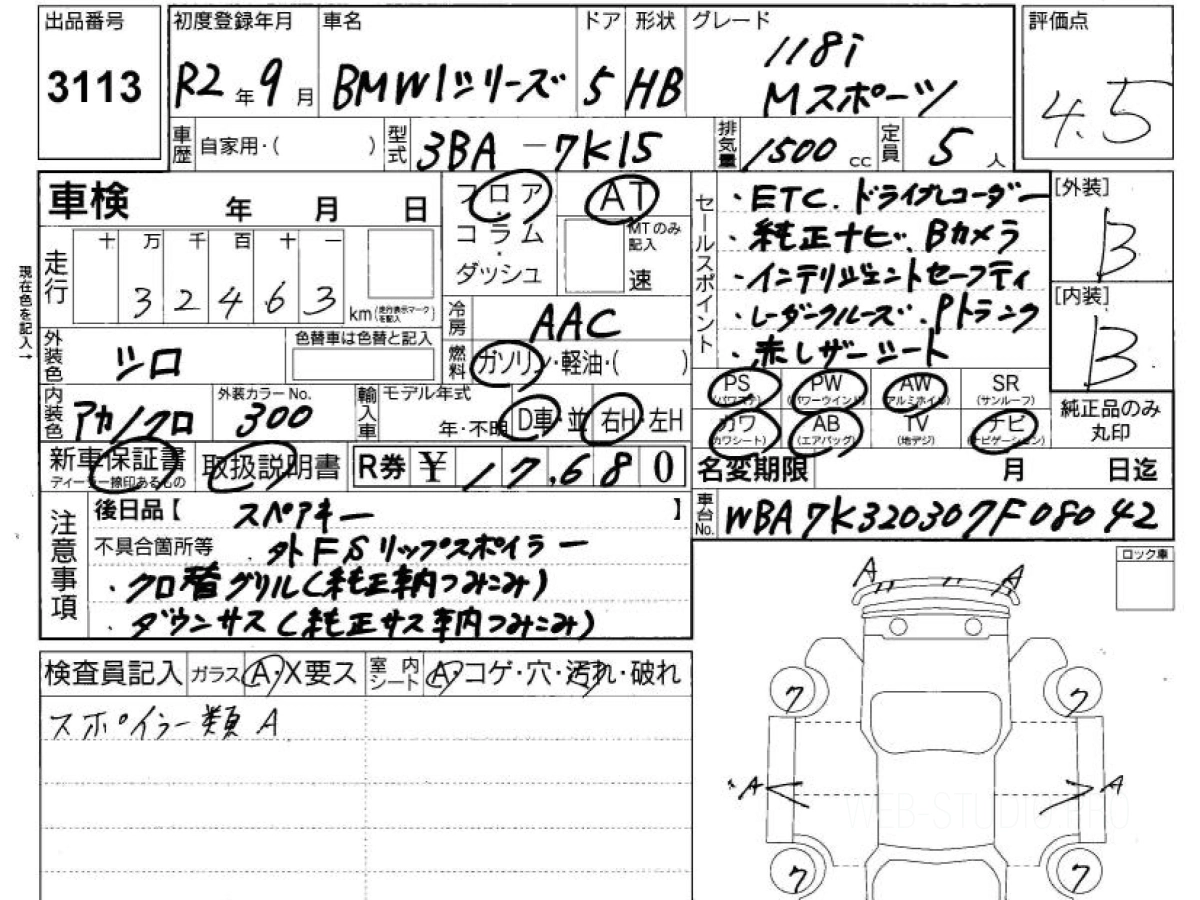 出品番号 初度登録年月 車名 ドア 形状 グレード 評価点
3113 R2年9月 BMW1シリーズ 5 HB 118i Mスポーツ 4.5
車歴 自家用・( ) 型式 3BA-7K15 排気量 1500cc 定員 5人
車検 年 月 日
フロア・コラム・ダッシュ AT MTのみ記入 速
現在色を記入→
走行 十 万 千 百 十 一
32463 km(走行表示マークを記入)
冷房 AAC
外装色 シロ 色替車は色替と記入
燃料 ガソリン・軽油・( )
内装色 アカ/クロ 外装カラーNo. 300
輸入車 モデル年式 年・不明 D車・並 右H・左H
新車保証書 ディーラー捺印あるもの 取扱説明書 R券 ¥17,680
セールスポイント
・ETC.ドライブレコーダー
・純正ナビ、Bカメラ
・インテリジェントセーフティ
・レーダークルーズ.Pトランク
・赤レザーシート
[外装] B
[内装] B
PS (パワステ) PW (パワーウインド) AW (アルミホイル) SR (サンルーフ)
カワ (カワシート) AB (エアバッグ) TV (地デジ) ナビ (ナビゲーション)
純正品のみ丸印
名変期限 月 日迄
車台No. WBA7K320307F08042
注意事項
後日品【 スペアキー 】
不具合箇所等 ・外FSリップスポイラー
・クロ替グリル(純正車内つみこみ)
・ダウンサス(純正サス車内つみこみ)
ロック車
検査員記入 ガラス A・X要ス 室内シート A・コゲ・穴・汚れ・破れ
スポイラー類A
A A
ク ク
A A
ク ク
WEB-STUDIO PRO